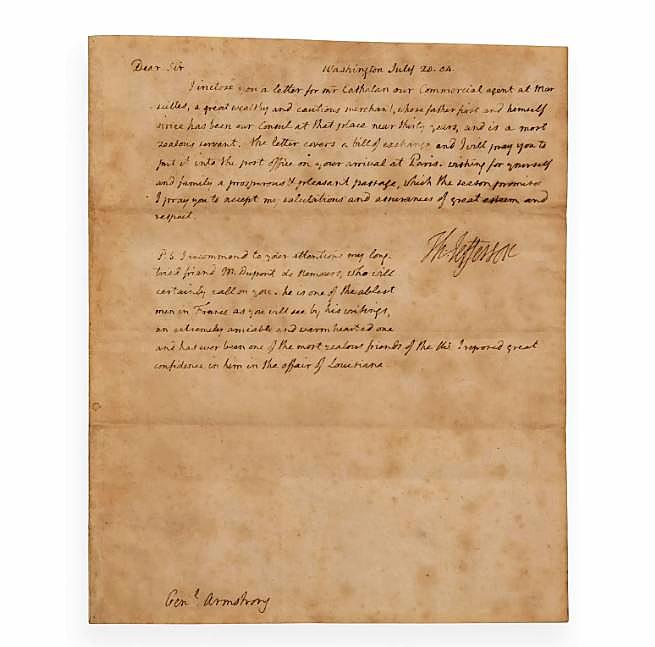 Dear Sir Washington July 20. 04.
I inclose you a letter for mr Cathalan our Commercial agent at Mar
seilles, a great wealthy and cautious merchant, whose father first and himself
since has been our Consul at that place near thirty years, and is a most
zealous servant. the letter covers a bill of exchange and I will pray you to
put it into the post office on your arrival at Paris. wishing for yourself
and family a prosperous & pleasant passage, which the season promises
I pray you to accept my salutations and assurances of great esteem and
respect.
Th: Jefferson
P.S. I recommend to your attentions my long
tried friend M. Dupont de Nemours, who will
certainly call on you. he is one of the ablest
men in France as you will see by his writings,
an extremely amiable and warm hearted one
and has ever been one of the most zealous friends of the US. I reposed great
confidence in him in the affair of Louisiana.
Genl. Armstrong